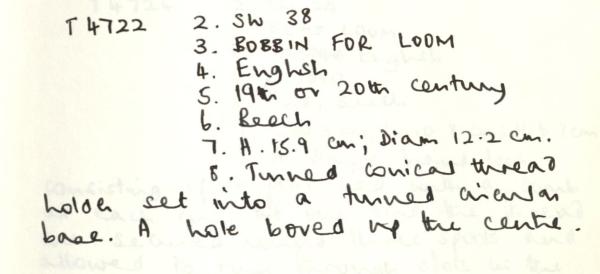 T 4722 2. SW 38
3. BOBBIN FOR LOOM
4. English
5. 19th or 20th century
6. Beech
7. H. 15.9 cm; Diam 12.2 cm.
8. Turned conical thread
holder set into a turned circular
base. A hole bored up the centre.